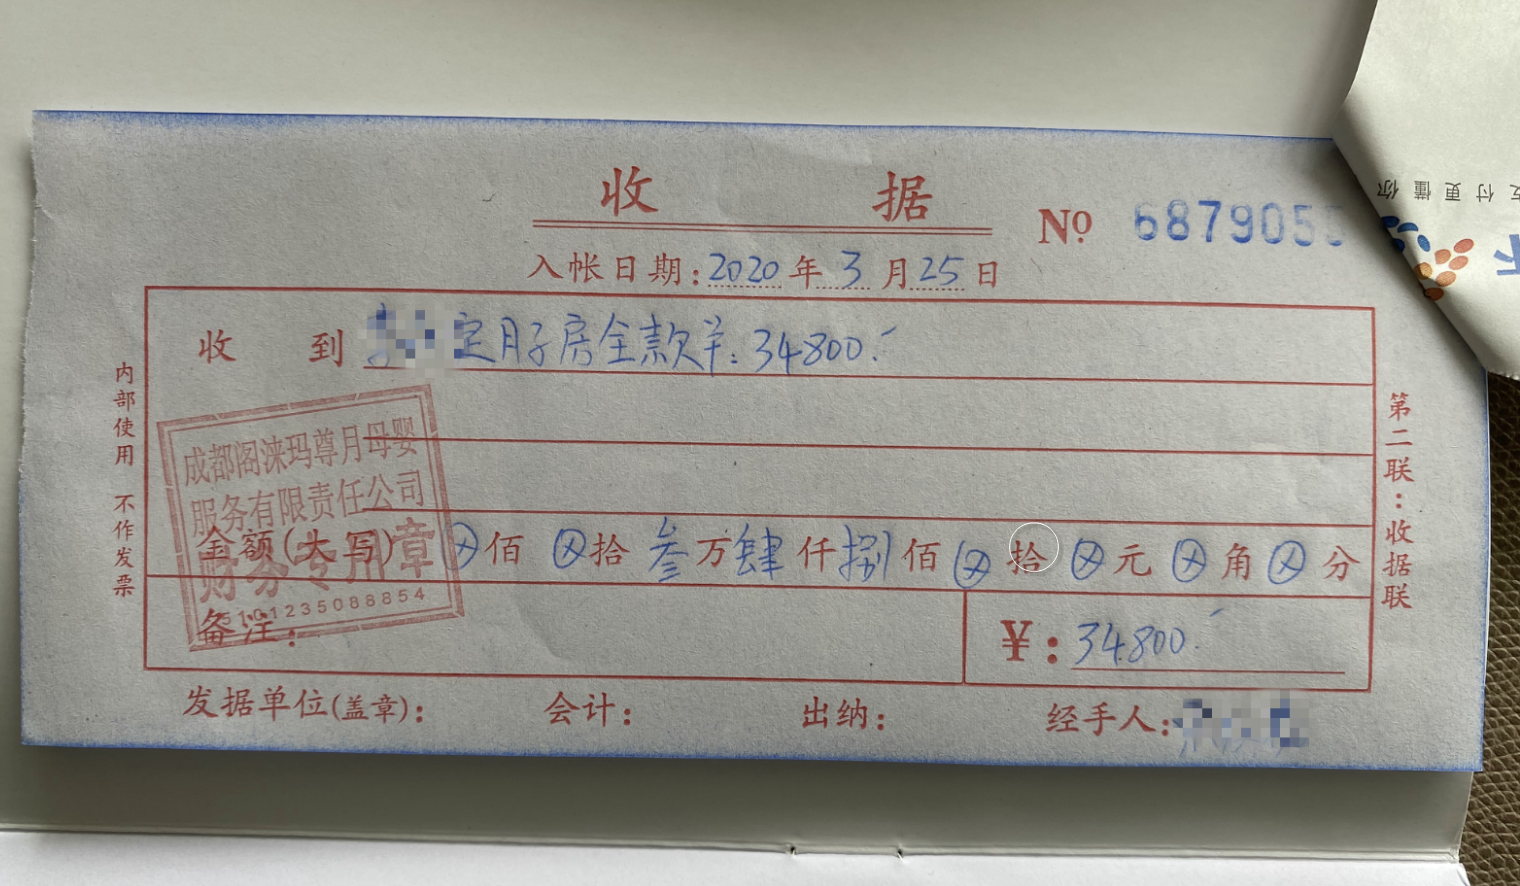 收 据
Nº 687905
入帐日期:2020年3月25日
收 到 定月子房全款羊:34800.
成都阁涞玛尊月母婴
服务有限责任公司
财务专用章
5101235088854
金额(大写) ⊗佰 ⊗拾 叁万肆仟捌佰⊗拾⊗元⊗角⊗分
备注:
¥:34800.
发据单位(盖章): 会计: 出纳: 经手人:
内部使用 不作发票
第二联:收据联
支付更懂你